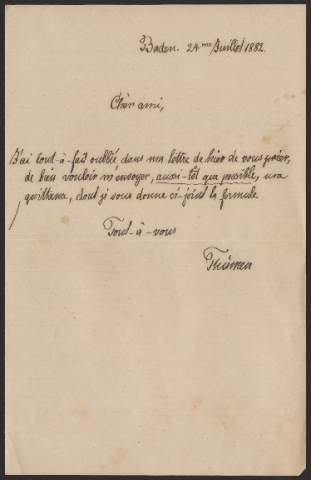 Baden. 24me Juillet 1882.
Chèr ami,
J'ai tout-à-fait oublié dans ma lettre de hier de vous prier,
de bien vouloir m'envoyer, aussi-tôt que possible, une
quittance, dont je vous donne ci-joint la formule.
Tout-à-vous
Thümen